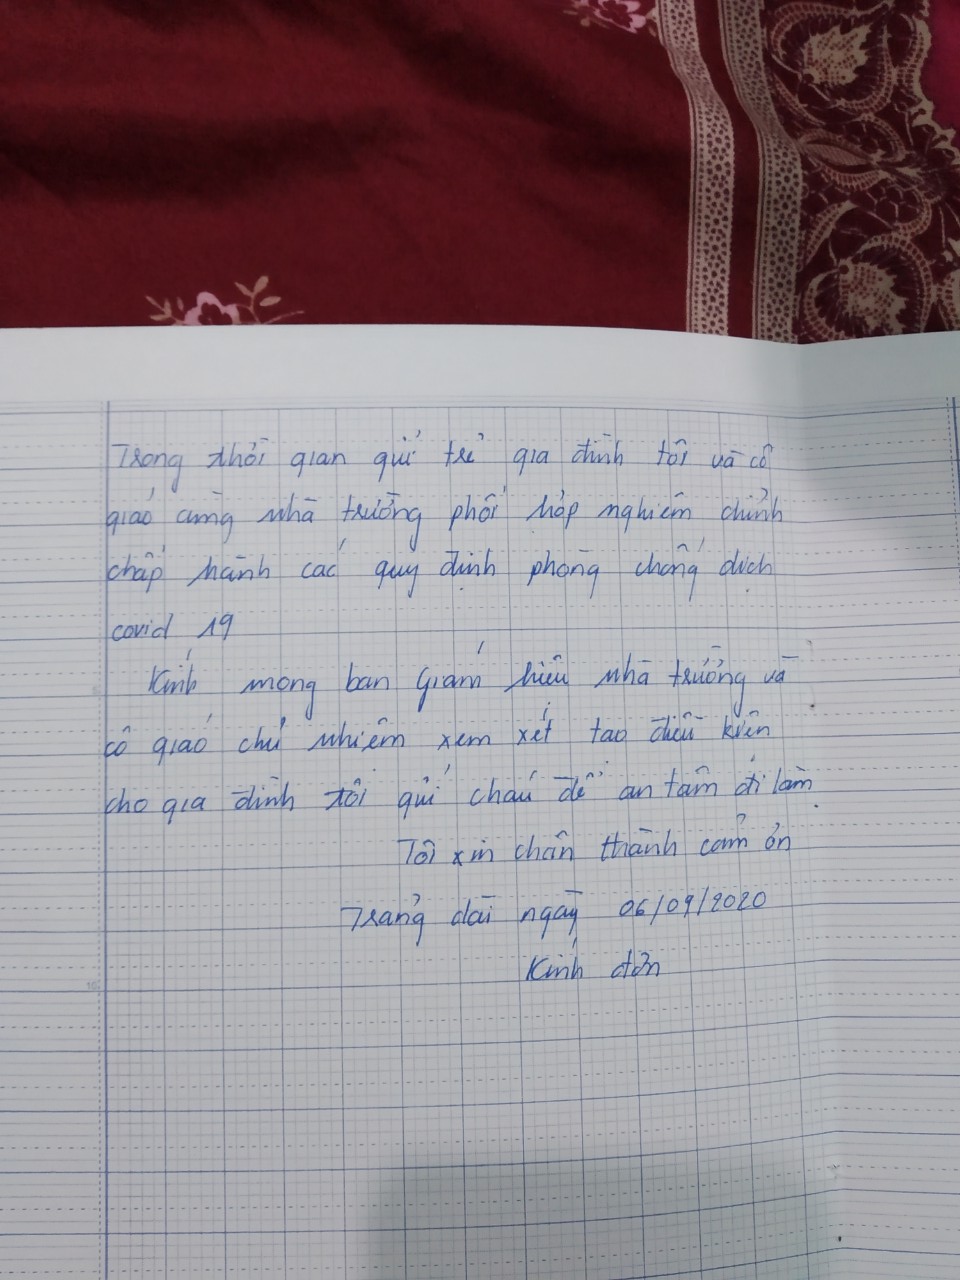 Trong thời gian gửi trẻ gia đình tôi và cô
giáo cùng nhà trường phối hợp nghiêm chỉnh
chấp hành các quy định phòng chống dịch
covid 19
Kính mong ban Giám hiệu nhà trường và
cô giáo chủ nhiệm xem xét tạo điều kiện
cho gia đình tôi gửi cháu để an tâm đi làm
Tôi xin chân thành cảm ơn
Trảng dài ngày 06/09/2020
Kính đơn